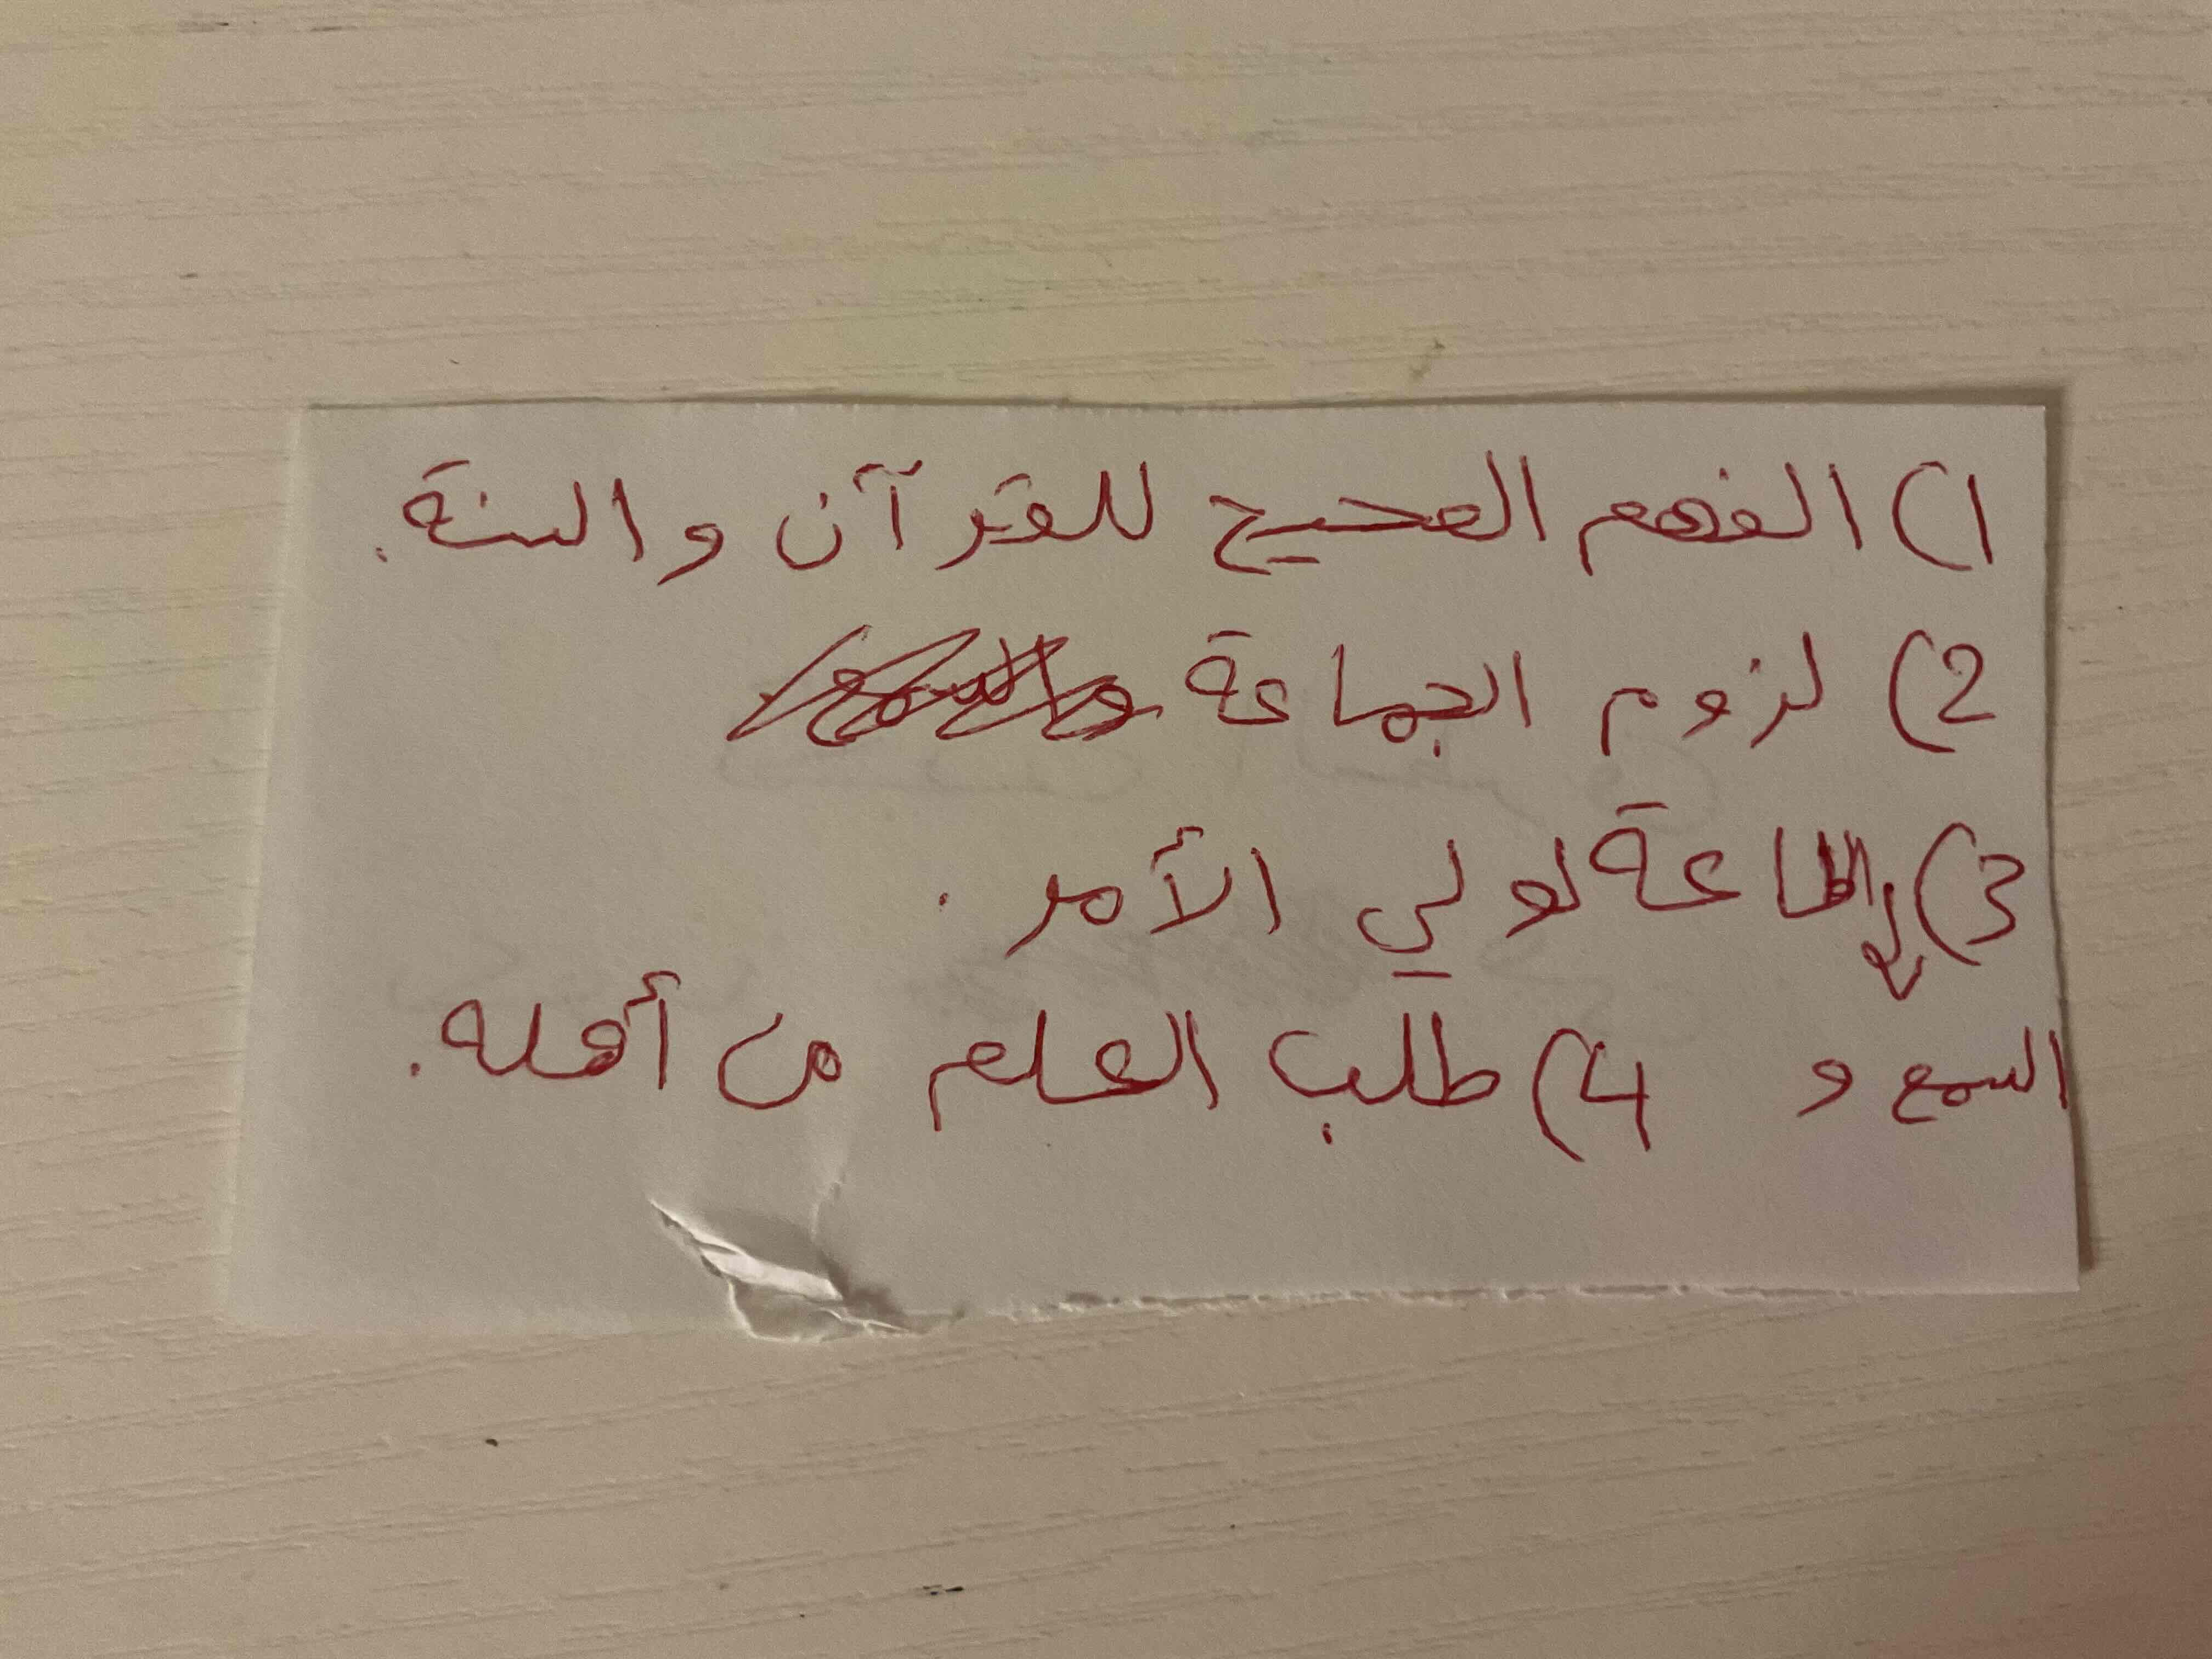 1) الفهم الصحيح للقرآن والسنة.
2) لزوم الجماعة
3) الطاعة لولي الأمر.
السمع و 4) طلب العلم من أهله.